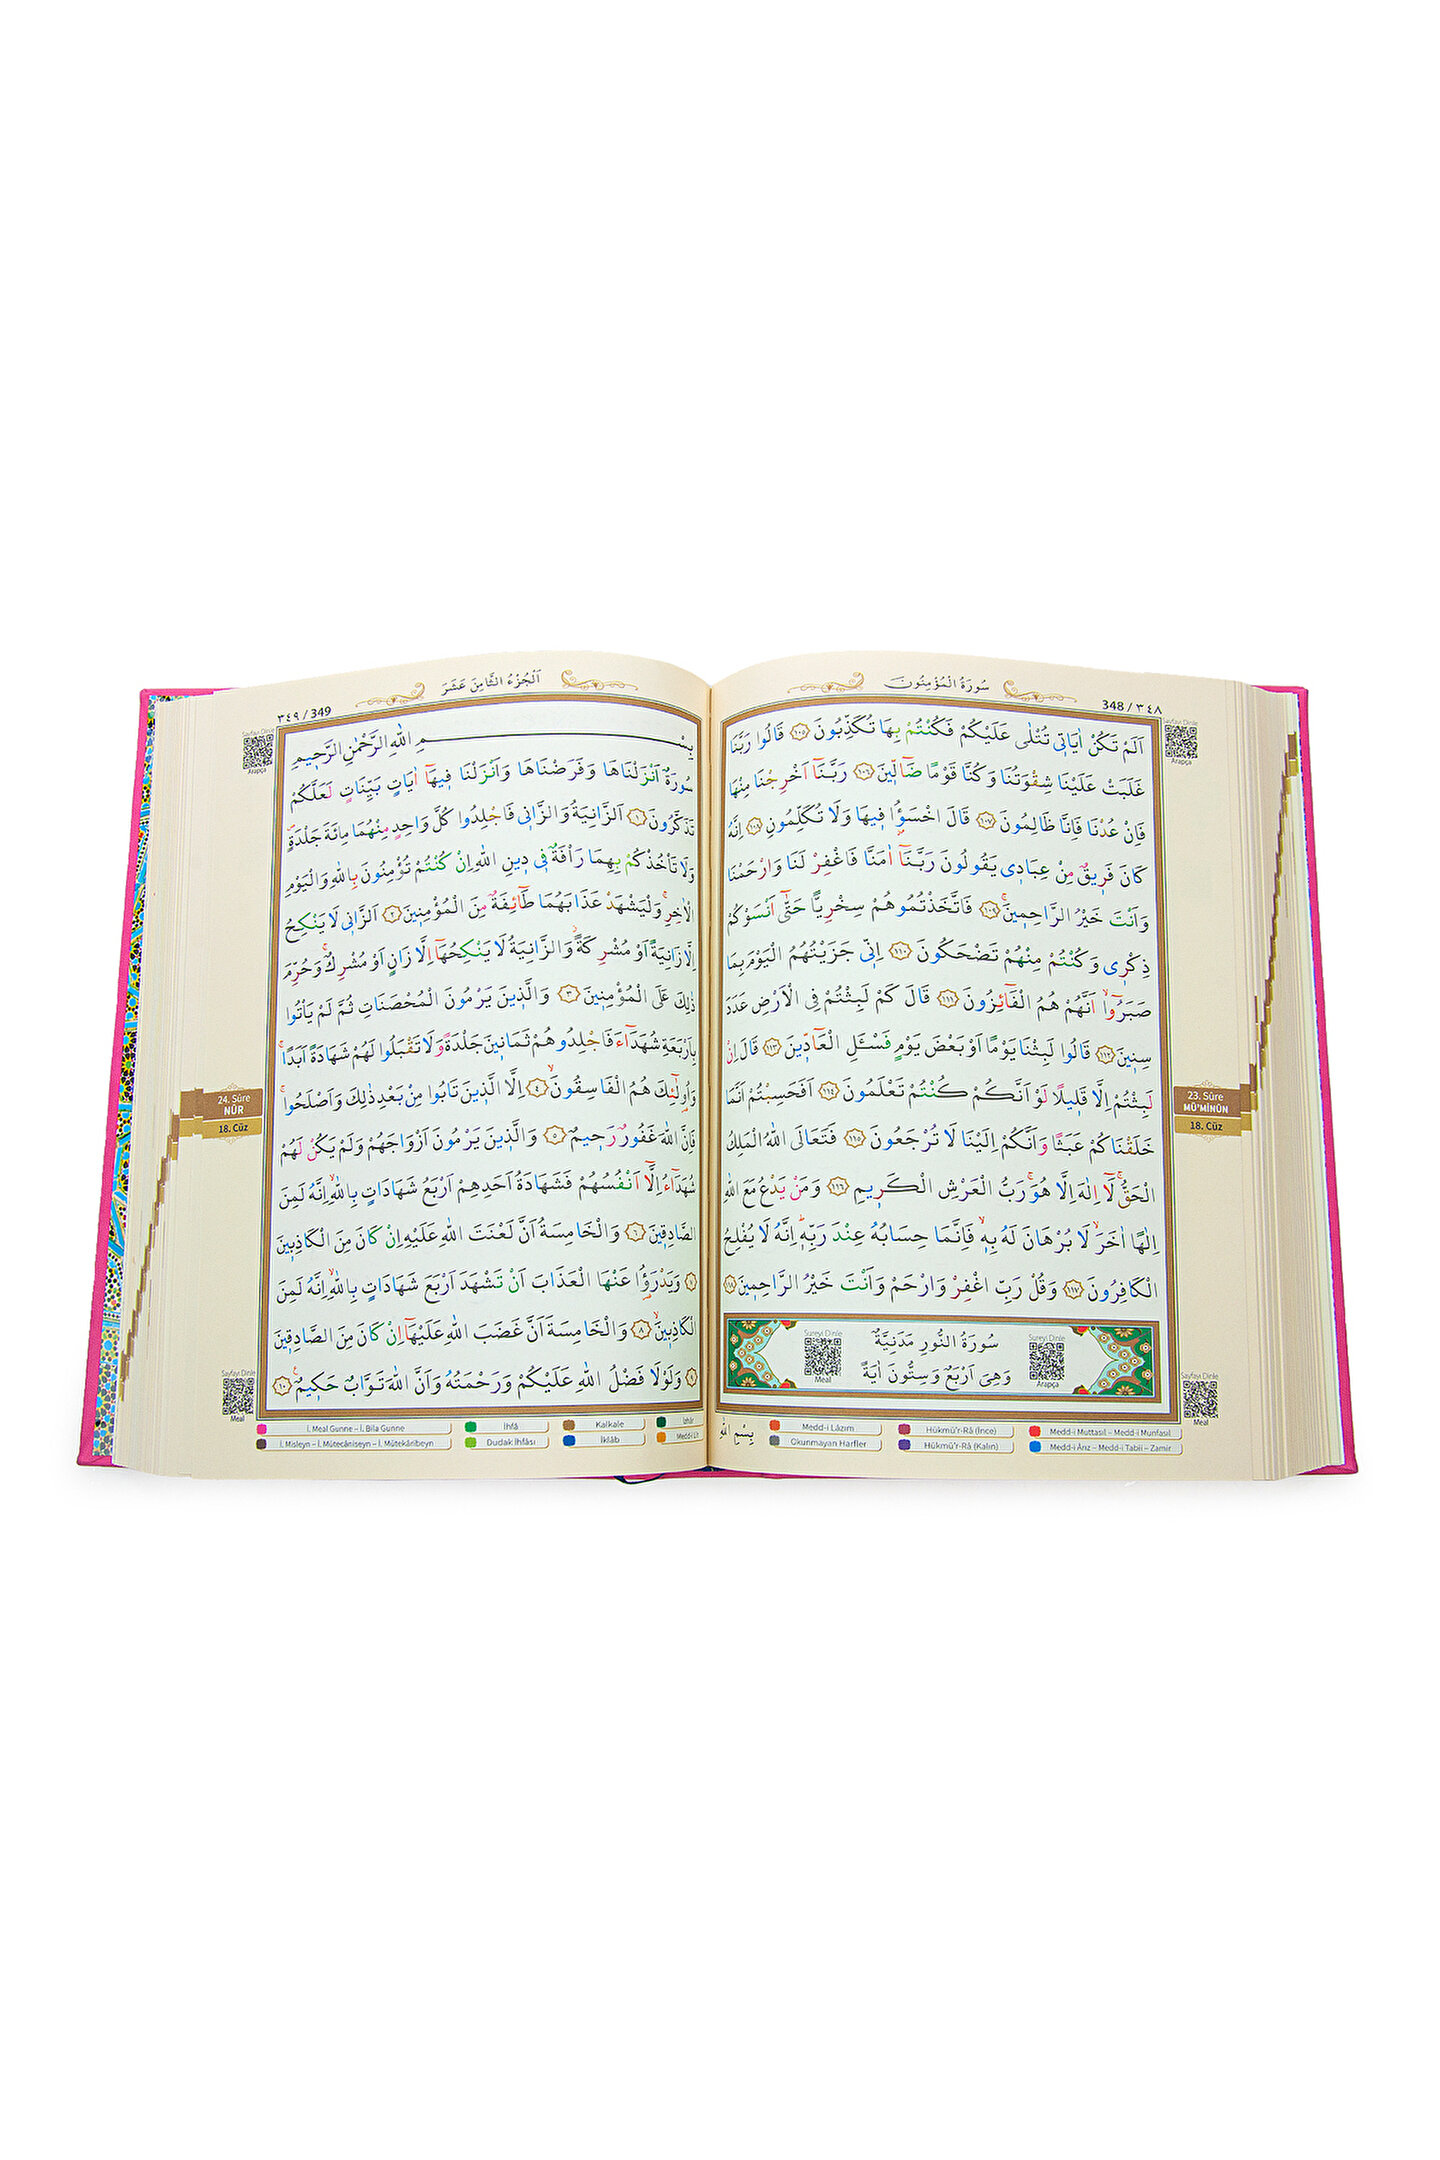 سُورَةُ الْمُؤْمِنُونَ
348 / ٣٤٨
Sayfayı Dinle
Arapça
اَلَمْ تَكُنْ اٰيَاتٖي تُتْلٰى عَلَيْكُمْ فَكُنْتُمْ بِهَا تُكَذِّبُونَ ﴿١٠٥﴾ قَالُوا رَبَّنَا
غَلَبَتْ عَلَيْنَا شِقْوَتُنَا وَكُنَّا قَوْمًا ضَٓالّٖينَ ﴿١٠٦﴾ رَبَّنَٓا اَخْرِجْنَا مِنْهَا
فَاِنْ عُدْنَا فَاِنَّا ظَالِمُونَ ﴿١٠٧﴾ قَالَ اخْسَؤُ۫ا فٖيهَا وَلَا تُكَلِّمُونِ ﴿١٠٨﴾ اِنَّهُ
كَانَ فَرٖيقٌ مِنْ عِبَادٖي يَقُولُونَ رَبَّنَٓا اٰمَنَّا فَاغْفِرْ لَنَا وَارْحَمْنَا
وَاَنْتَ خَيْرُ الرَّاحِمٖينَۚ ﴿١٠٩﴾ فَاتَّخَذْتُمُوهُمْ سِخْرِيًّا حَتّٰٓى اَنْسَوْكُمْ
ذِكْرٖي وَكُنْتُمْ مِنْهُمْ تَضْحَكُونَ ﴿١١٠﴾ اِنّٖي جَزَيْتُهُمُ الْيَوْمَ بِمَا
صَبَرُٓواۙ اَنَّهُمْ هُمُ الْفَٓائِزُونَ ﴿١١١﴾ قَالَ كَمْ لَبِثْتُمْ فِي الْاَرْضِ عَدَدَ
سِنٖينَ ﴿١١٢﴾ قَالُوا لَبِثْنَا يَوْمًا اَوْ بَعْضَ يَوْمٍ فَسْـَٔلِ الْعَٓادّٖينَ ﴿١١٣﴾ قَالَ اِنْ
لَبِثْتُمْ اِلَّا قَلٖيلًا لَوْ اَنَّكُمْ كُنْتُمْ تَعْلَمُونَ ﴿١١٤﴾ اَفَحَسِبْتُمْ اَنَّمَا
خَلَقْنَاكُمْ عَبَثًا وَاَنَّكُمْ اِلَيْنَا لَا تُرْجَعُونَ ﴿١١٥﴾ فَتَعَالَى اللّٰهُ الْمَلِكُ
الْحَقُّۚ لَٓا اِلٰهَ اِلَّا هُوَۚ رَبُّ الْعَرْشِ الْكَرٖيمِ ﴿١١٦﴾ وَمَنْ يَدْعُ مَعَ اللّٰهِ
اِلٰهًا اٰخَرَۙ لَا بُرْهَانَ لَهُ بِهٖۙ فَاِنَّمَا حِسَابُهُ عِنْدَ رَبِّهٖۜ اِنَّهُ لَا يُفْلِحُ
الْكَافِرُونَ ﴿١١٧﴾ وَقُلْ رَبِّ اغْفِرْ وَارْحَمْ وَاَنْتَ خَيْرُ الرَّاحِمٖينَ ﴿١١٨﴾
23. Sûre
MÜ'MİNÛN
18. Cüz
Sureyi Dinle
Arapça
سُورَةُ النُّورِ مَدَنِيَّةٌ
وَهِيَ اَرْبَعٌ وَسِتُّونَ اٰيَةً
Sureyi Dinle
Meal
Sayfayı Dinle
Meal
بِسْمِ اللّٰهِ
Medd-i Lâzım
Hükmü'r-Râ (İnce)
Medd-i Muttasıl – Medd-i Munfasıl
Okunmayan Harfler
Hükmü'r-Râ (Kalın)
Medd-i Ârız – Medd-i Tabii – Zamir
اَلْجُزْءُ الثَّامِنَ عَشَرَ
٣٤٩ / 349
Sayfayı Dinle
Arapça
بِسْمِ اللّٰهِ الرَّحْمٰنِ الرَّحٖيمِ
سُورَةٌ اَنْزَلْنَاهَا وَفَرَضْنَاهَا وَاَنْزَلْنَا فٖيهَٓا اٰيَاتٍ بَيِّنَاتٍ لَعَلَّكُمْ
تَذَكَّرُونَ ﴿١﴾ اَلزَّانِيَةُ وَالزَّانٖي فَاجْلِدُوا كُلَّ وَاحِدٍ مِنْهُمَا مِائَةَ جَلْدَةٍۖ
وَلَا تَأْخُذْكُمْ بِهِمَا رَأْفَةٌ فٖي دٖينِ اللّٰهِ اِنْ كُنْتُمْ تُؤْمِنُونَ بِاللّٰهِ وَالْيَوْمِ
الْاٰخِرِۚ وَلْيَشْهَدْ عَذَابَهُمَا طَٓائِفَةٌ مِنَ الْمُؤْمِنٖينَ ﴿٢﴾ اَلزَّانٖي لَا يَنْكِحُ
اِلَّا زَانِيَةً اَوْ مُشْرِكَةًۘ وَالزَّانِيَةُ لَا يَنْكِحُهَٓا اِلَّا زَانٍ اَوْ مُشْرِكٌۚ وَحُرِّمَ
ذٰلِكَ عَلَى الْمُؤْمِنٖينَ ﴿٣﴾ وَالَّذٖينَ يَرْمُونَ الْمُحْصَنَاتِ ثُمَّ لَمْ يَأْتُوا
بِاَرْبَعَةِ شُهَدَٓاءَ فَاجْلِدُوهُمْ ثَمَانٖينَ جَلْدَةً وَلَا تَقْبَلُوا لَهُمْ شَهَادَةً اَبَدًاۚ
وَاُو۬لٰٓئِكَ هُمُ الْفَاسِقُونَۙ ﴿٤﴾ اِلَّا الَّذٖينَ تَابُوا مِنْ بَعْدِ ذٰلِكَ وَاَصْلَحُواۚ
فَاِنَّ اللّٰهَ غَفُورٌ رَحٖيمٌ ﴿٥﴾ وَالَّذٖينَ يَرْمُونَ اَزْوَاجَهُمْ وَلَمْ يَكُنْ لَهُمْ
شُهَدَٓاءُ اِلَّٓا اَنْفُسُهُمْ فَشَهَادَةُ اَحَدِهِمْ اَرْبَعُ شَهَادَاتٍ بِاللّٰهِۙ اِنَّهُ لَمِنَ
الصَّادِقٖينَ ﴿٦﴾ وَالْخَامِسَةُ اَنَّ لَعْنَتَ اللّٰهِ عَلَيْهِ اِنْ كَانَ مِنَ الْكَاذِبٖينَ
﴿٧﴾ وَيَدْرَؤُ۬ا عَنْهَا الْعَذَابَ اَنْ تَشْهَدَ اَرْبَعَ شَهَادَاتٍ بِاللّٰهِۙ اِنَّهُ لَمِنَ
الْكَاذِبٖينَۙ ﴿٨﴾ وَالْخَامِسَةَ اَنَّ غَضَبَ اللّٰهِ عَلَيْهَٓا اِنْ كَانَ مِنَ الصَّادِقٖينَ
﴿٩﴾ وَلَوْلَا فَضْلُ اللّٰهِ عَلَيْكُمْ وَرَحْمَتُهُ وَاَنَّ اللّٰهَ تَوَّابٌ حَكٖيمٌ ﴿١٠﴾
24. Sûre
NÛR
18. Cüz
Sayfayı Dinle
Meal
İ. Meal Gunne – İ. Bila Gunne
İhfâ
Kalkale
İzhâr
İ. Misleyn – İ. Mütecâniseyn – İ. Mütekâribeyn
Dudak İhfâsı
İklâb
Medd-i Lîn